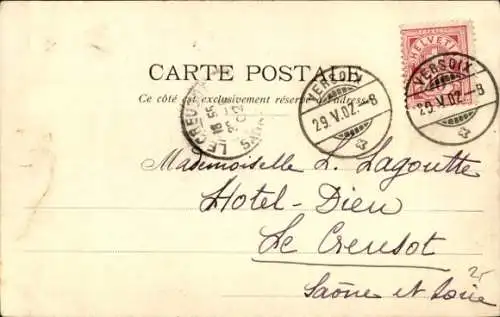 CARTE POSTALE
Ce côté est exclusivement réservé à l'adresse.
HELVETIA
VERSOIX
29.V.02.-8
VERSOIX
29.V.02.-8
LE CREUSOT
Mademoiselle L. Lagoutte
Hotel-Dieu
Le Creusot
Saône et Loire